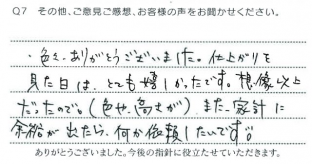 Q7 その他、ご意見ご感想、お客様の声をお聞かせください。
・色々、ありがとうございました。仕上がりを
見た日は、とても嬉しかったです。想像以上
だったので。(色や、高さが) また、家計に
余裕が出たら、何か依頼したいです。
ありがとうございました。今後の指針に役立たせていただきます。